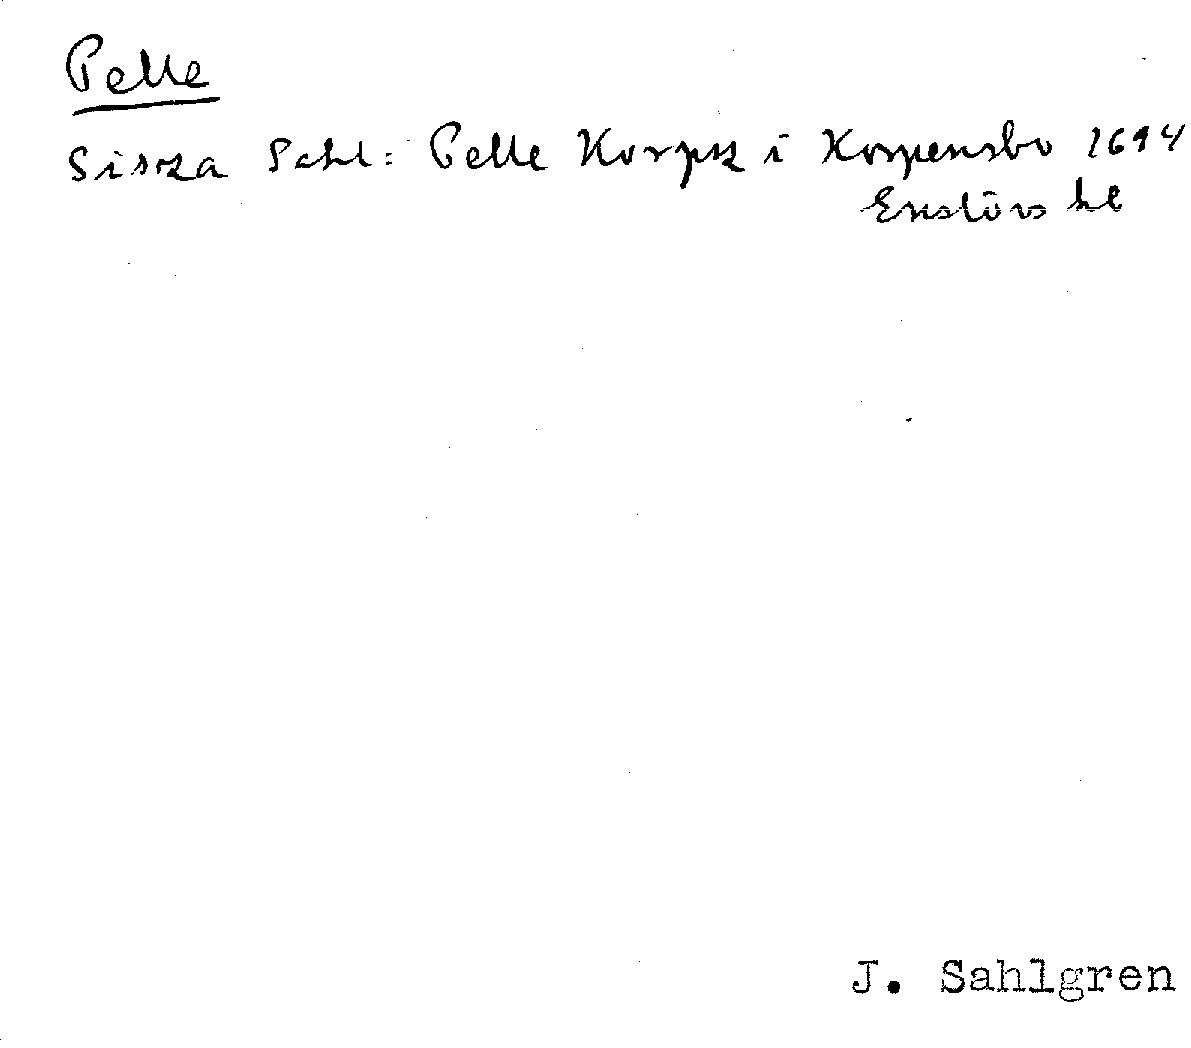 Pelle
Sissa Sahl: Pelle Korpsz i Korpensbo 1694
Enslövs hl
J. Sahlgren